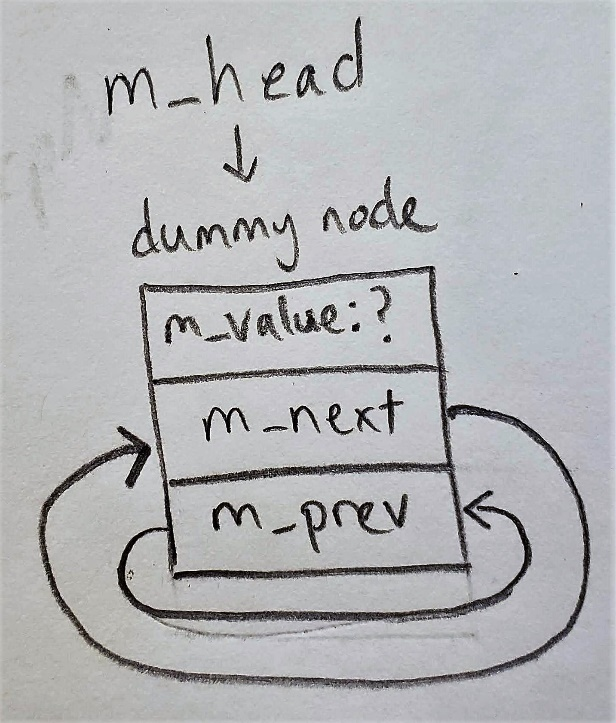 m_head
dummy node
m_value:?
m_next
m_prev